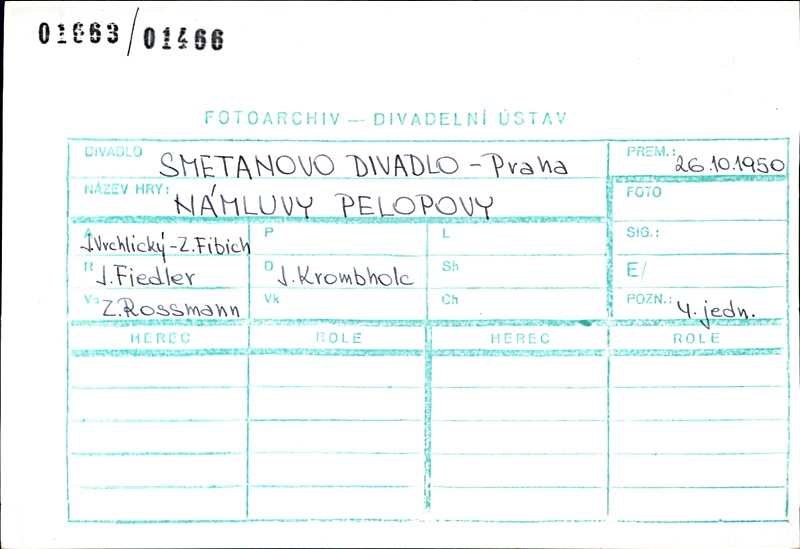 01663/01466
FOTOARCHIV — DIVADELNÍ ÚSTAV
DIVADLO SMETANOVO DIVADLO - Praha PREM.: 26.10.1950
NÁZEV HRY: NÁMLUVY PELOPOVY FOTO
A J.Vrchlický-Z.Fibich P L SIG.:
R J.Fiedler D J.Krombholc Sh E/
Vs Z.Rossmann Vk Ch POZN.: 4. jedn.
HEREC ROLE HEREC ROLE